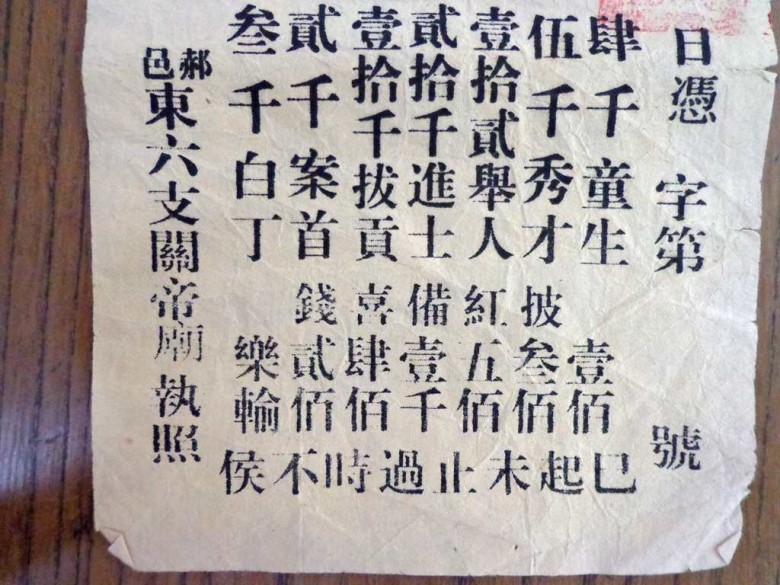 日憑 字第 號
肆千童生
伍千秀才
壹拾貳舉人
貳拾千進士
壹拾千拔貢
貳千案首
叁千白丁
披紅備喜錢
壹佰
叁佰
五佰
壹千
肆佰
貳佰
樂輸
巳起未止過時不侯
郝邑東六支關帝廟執照